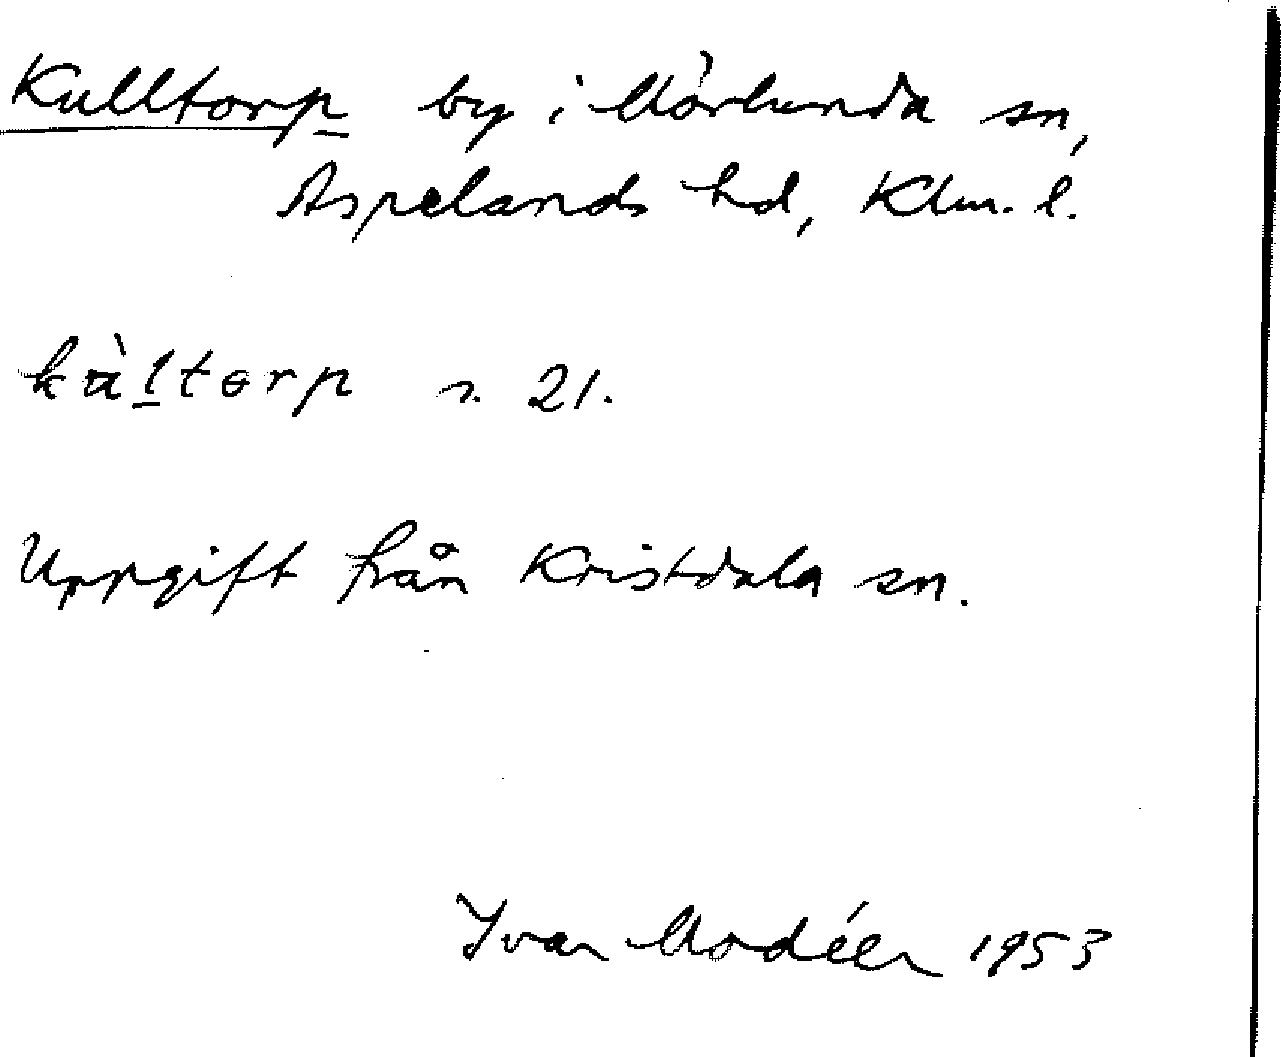 Kulltorp by i Mörlunda sn,
Aspelands hd, Klm. l.
kàltorp s. 21.
Uppgift från Kristdala sn.
Ivar Modéer 1953